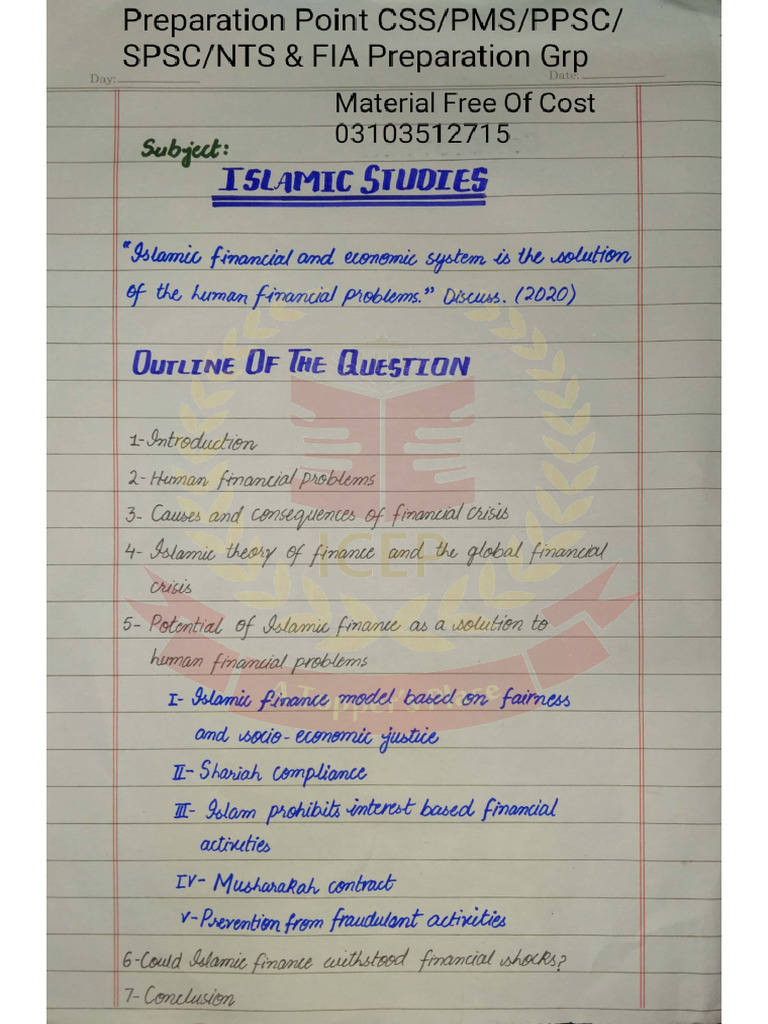 Preparation Point CSS/PMS/PPSC/
SPSC/NTS & FIA Preparation Grp
Day:
Date:
Material Free Of Cost
03103512715
Subject:
ISLAMIC STUDIES
"Islamic financial and economic system is the solution
of the human financial problems." Discuss. (2020)
OUTLINE OF THE QUESTION
1-Introduction
2- Human financial problems
3- Causes and consequences of financial crisis
4- Islamic theory of finance and the global financial
crisis
ICEP
5- Potential of Islamic finance as a solution to
human financial problems
A Topper's Place
I- Islamic finance model based on fairness
and socio-economic justice
II- Shariah compliance
III- Islam prohibits interest based financial
activities
IV- Musharakah contract
V-Prevention from fraudulant activities
6-Could Islamic finance withstood financial shocks?
7- Conclusion